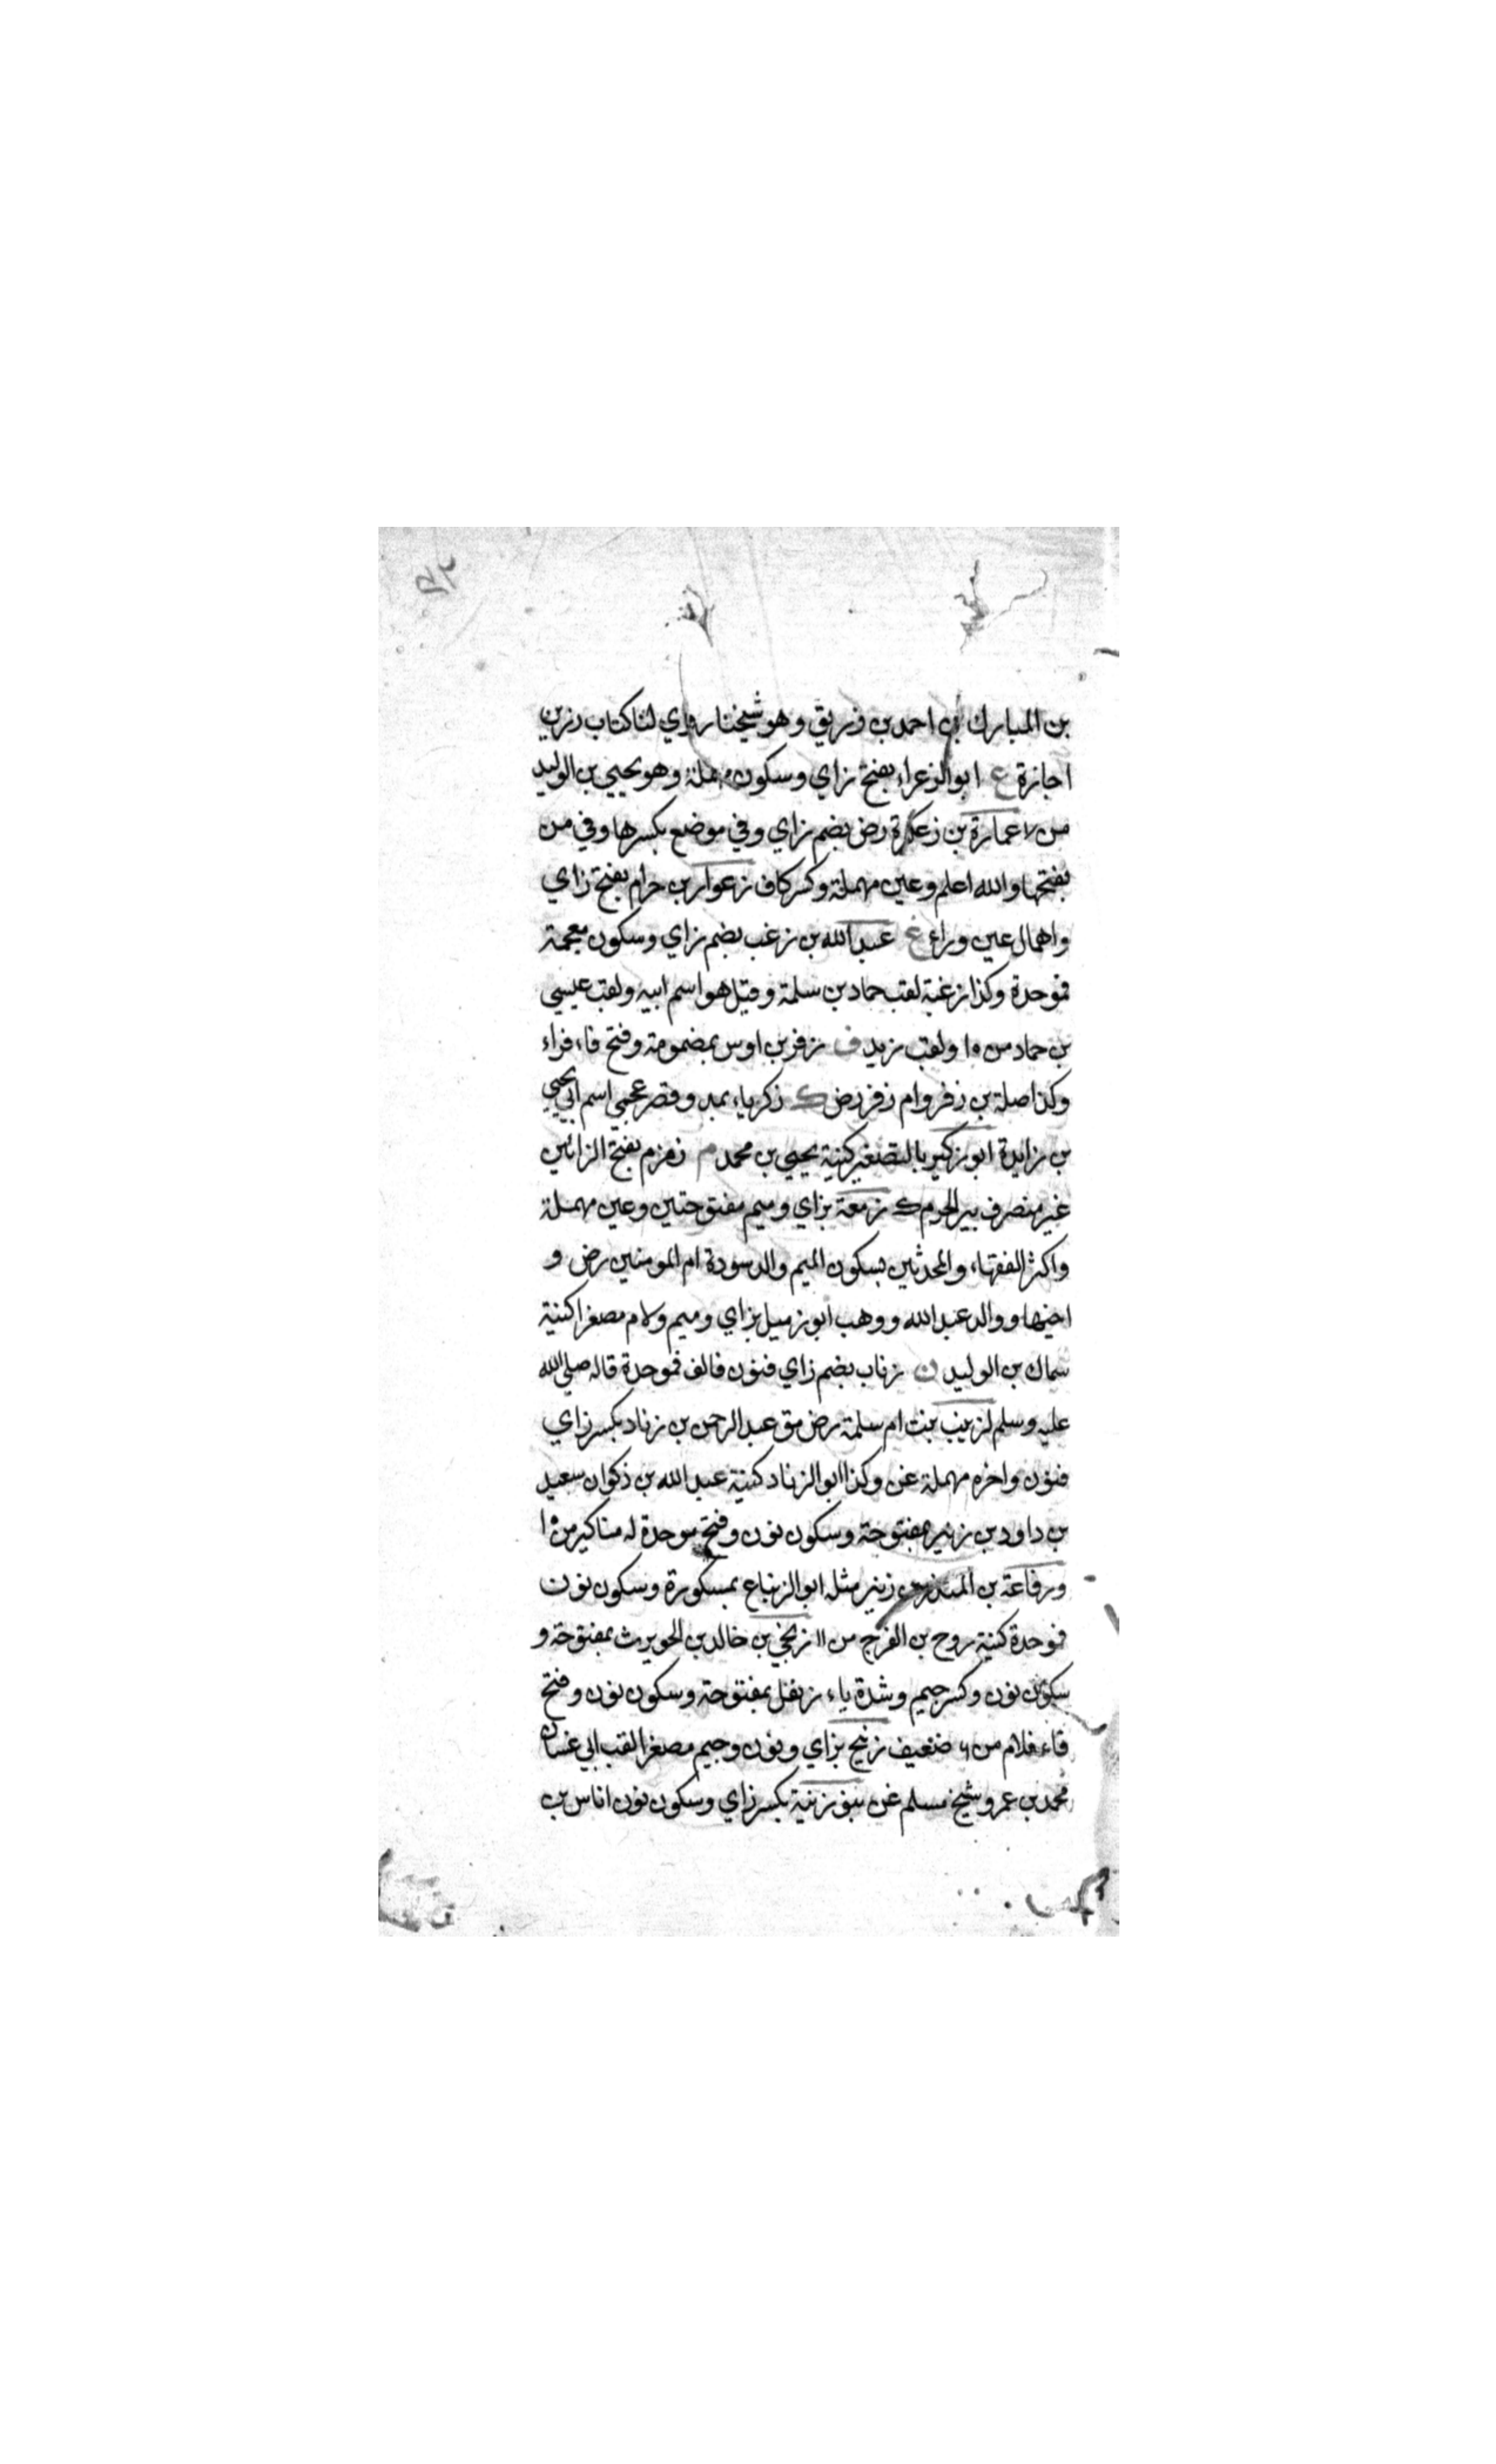 بن المبارك بن احمد بن زريق وهو شيخنا روي لنا كتاب رزين
اجازة ع ابو الزعراء بفتح زاي وسكون مهملة وهو يحيي بن الوليد
من ٧ عمارة بن زعكرة رض بضم زاي وفي موضع بكسرها وفي من
بفتحها والله اعلم وعين مهملة وكسر كاف زعوار بن حرام بفتح زاي
واهمال عين وراء غ عبد الله بن زغب بضم زاي وسكون معجمة
فموحدة وكذا زغبة لقب حماد بن سلمة وقيل هو اسم ابيه ولقب عيسي
بن حماد من ١٥ ولقب زيد ف زفر بن اوس بمضمومة وفتح فاء فراء
وكذا صلة بن زفر وام زفر رض ك زكرياء بمد وقصر عجمي اسم ابي يحيي
بن زايدة ابو زكير بالتصغير كنية يحيي بن محمد م زمزم بفتح الزائين
غير منصرف بير الحرم ك زمعة بزاي وميم مفتوحتين وعين مهملة
واكثر الفقهاء والمحدثين بسكون الميم والد سودة ام المومنين رض و
اخيها ووالد عبد الله ووهب ابو زميل بزاي وميم ولام مصغرا كنية
سماك بن الوليد ن زناب بضم زاي فنون فالف فموحدة قاله صلي الله
عليه وسلم لزينب بنت ام سلمة رض مق عبد الرحمن بن زناد بكسر زاي
فنون واخره مهملة غن وكذا ابو الزناد كنية عبد الله بن ذكوان سعيد
بن داود بن زنبر بمفتوحة وسكون نون وفتح موحدة له مناكير من ١٥
ورفاعة بن المنذر بن زنبر مثله ابو الزنباع بمكسورة وسكون نون
فموحدة كنية روح بن الفرج من ١١ زنجي بن خالد بن الحويرث بمفتوحة و
سكون نون وكسر جيم وشدة ياء زنفل بمفتوحة وسكون نون وفتح
فاء فلام من ٦ ضعيف زنيج بزاي ونون وجيم مصغرا لقب ابي غسان
محمد بن عمرو شيخ مسلم غن بنو زنية بكسر زاي وسكون نون اناس بن